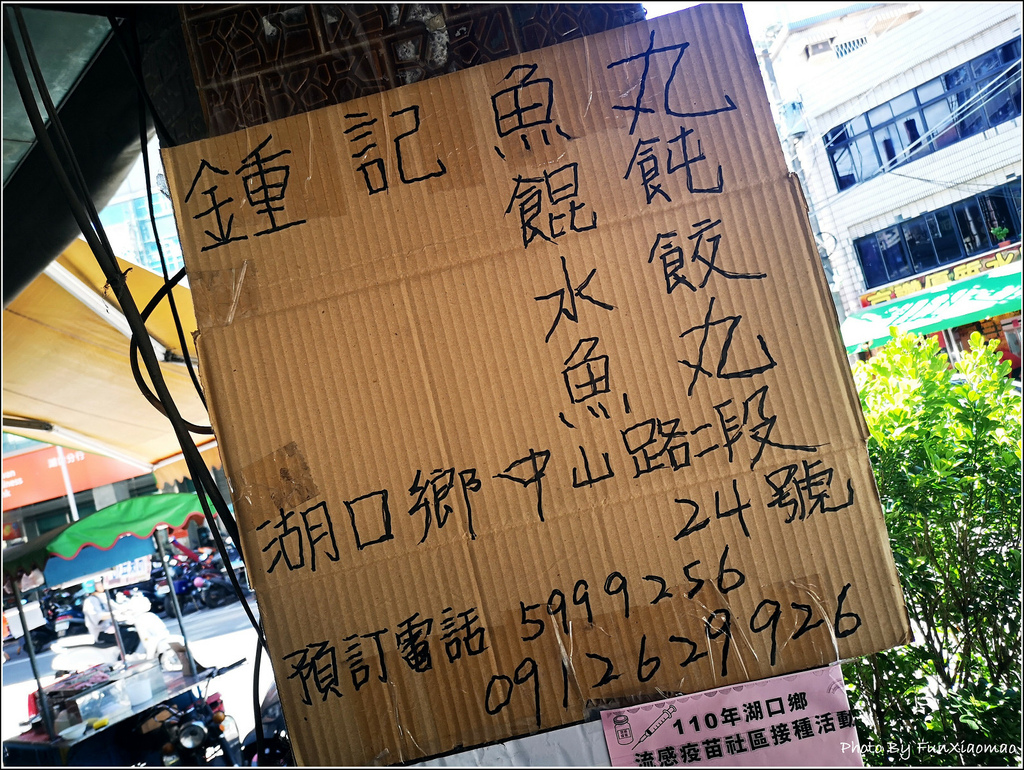 鍾記魚丸
餛飩
水餃
魚丸
湖口鄉中山路二段
24號
預訂電話 5999256
0912629926
110年湖口鄉
流感疫苗社區接種活動
Photo By FunXiaomao